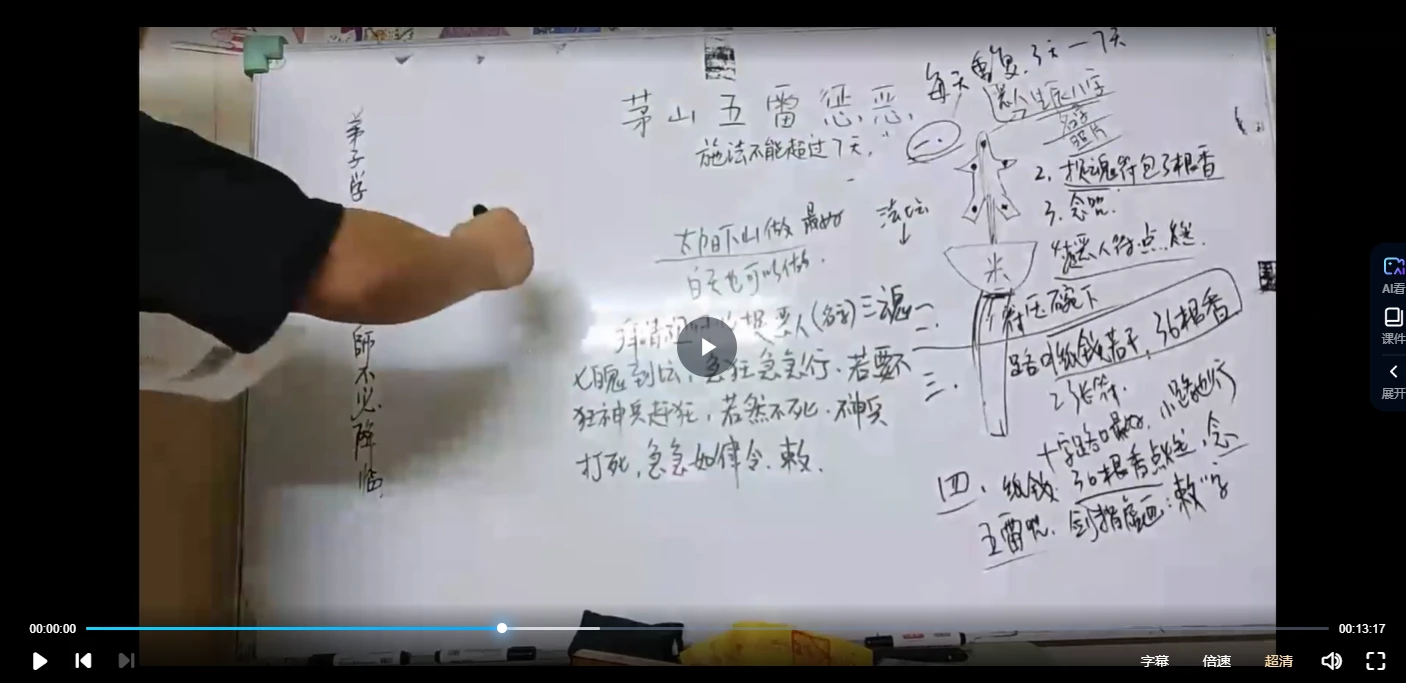 每天重复.3天一7天
茅山五雷惩恶.
恶人生辰八字
名字
照片
施法不能超过7天,
2.招魂符包3根香
3.念咒.
烧恶人符点烧.
弟子学
師不必降临.
太阳下山做 最好
白天也可以做.
法坛
米
符压碗下
恶人(名字)三魂
七魄到坛,急狂急急行.若要不
狂神兵赶狂,若然不死.神兵
打死,急急如律令.敕.
一
二.
三.
路口纸钱若干,36根香
2张符.
十字路口最好,小路也行
四.纸钱.36根香点烧,念
五雷咒.剑指虚画:敕"字
AI看
课件
展开
00:00:00
00:13:17
字幕
倍速
超清